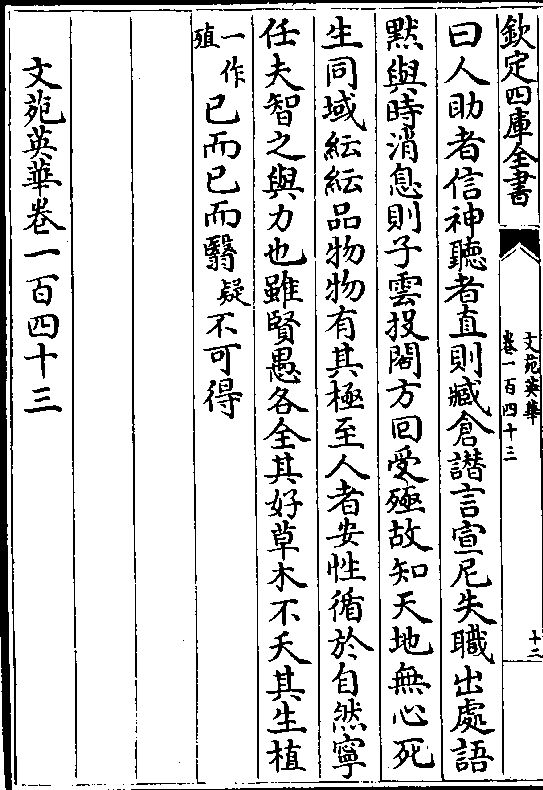 欽定四庫全書
文苑英華
卷一百四十三
十二
曰人助者信神聽者直則臧倉譖言宣尼失職出處語
默與時消息則子雲投閣方回受殛故知天地無心死
生同域紜紜品物物有其極至人者安性循於自然寧
任夫智之與力也雖賢愚各全其好草木不夭其生植
一作
殖
已而已而翳疑不可得
文苑英華卷一百四十三